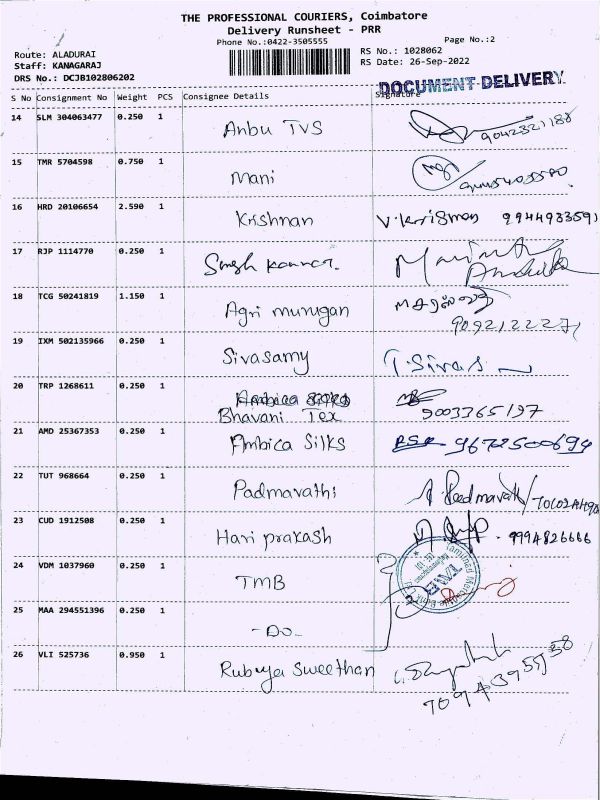 THE PROFESSIONAL COURIERS, Coimbatore
Delivery Runsheet - PRR
Phone No.:0422-3505555
Page No.:2
Route: ALADURAI
RS No.: 1028062
Staff: KANAGARAJ
RS Date: 26-Sep-2022
DRS No.: DCJB102806202
DOCUMENT DELIVERY
S No Consignment No Weight PCS Consignee Details Signature
14 SLM 304063477 0.250 1 Anbu TVS
15 TMR 5704598 0.750 1 Mani
16 HRD 20106654 2.590 1 Krishnan V.Krrisman 9944933591
17 RJP 1114770 0.250 1
18 TCG 50241819 1.150 1 Agri murugan
9092122271
19 IXM 502135966 0.250 1 Sivasamy T.Sivas
20 TRP 1268611 0.250 1 Bhavani Tex 9003365197
21 AMD 25367353 0.250 1 Ambica Silks 9672500694
22 TUT 968664 0.250 1 Padmavathi
23 CUD 1912508 0.250 1 Hari prakash 9994826666
24 VDM 1037960 0.250 1 TMB
25 MAA 294551396 0.250 1 -Do-
26 VLI 525736 0.950 1 Rubeya Sweethan